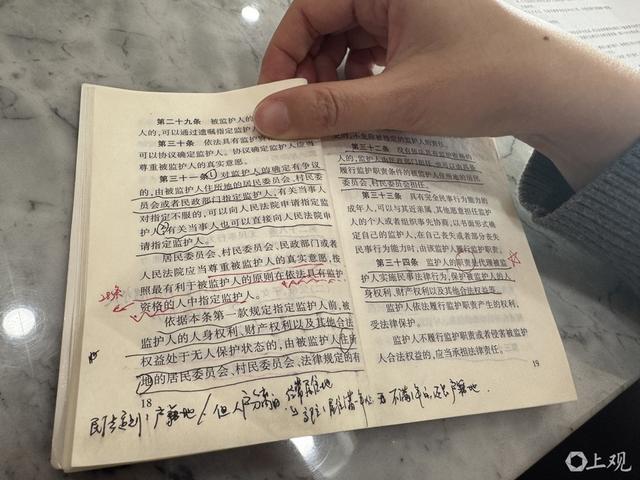 第二十九条 被监护人的
人的,可以通过遗嘱指定监护
第三十条 依法具有监护
可以协议确定监护人。协议确定监护人应当
尊重被监护人的真实意愿。
第三十一条 ①对监护人的确定有争议
的,由被监护人住所地的居民委员会、村民委
员会或者民政部门指定监护人,有关当事人
对指定不服的,可以向人民法院申请指定监
护人;②有关当事人也可以直接向人民法院申
请指定监护人。
居民委员会、村民委员会、民政部门或者
人民法院应当尊重被监护人的真实意愿,按
照最有利于被监护人的原则在依法具有监护
资格的人中指定监护人。
依据本条第一款规定指定监护人前,被
监护人的人身权利、财产权利以及其他合法
权益处于无人保护状态的,由被监护人住所
地的居民委员会、村民委员会、法律规定的有
18
的,不免除被指定的监护人的责任。
第三十二条 没有依法具有监护资格的
人的,监护人由民政部门担任,也可以由具备
履行监护职责条件的被监护人住所地的居民
委员会、村民委员会担任。
第三十三条 具有完全民事行为能力的
成年人,可以与其近亲属、其他愿意担任监护
人的个人或者组织事先协商,以书面形式确
定自己的监护人,在自己丧失或者部分丧失
民事行为能力时,由该监护人履行监护职责。
第三十四条 监护人的职责是代理被监
护人实施民事法律行为,保护被监护人的人
身权利、财产权利以及其他合法权益等。
监护人依法履行监护职责产生的权利,
受法律保护。
监护人不履行监护职责或者侵害被监护
人合法权益的,应当承担法律责任。
19
上观